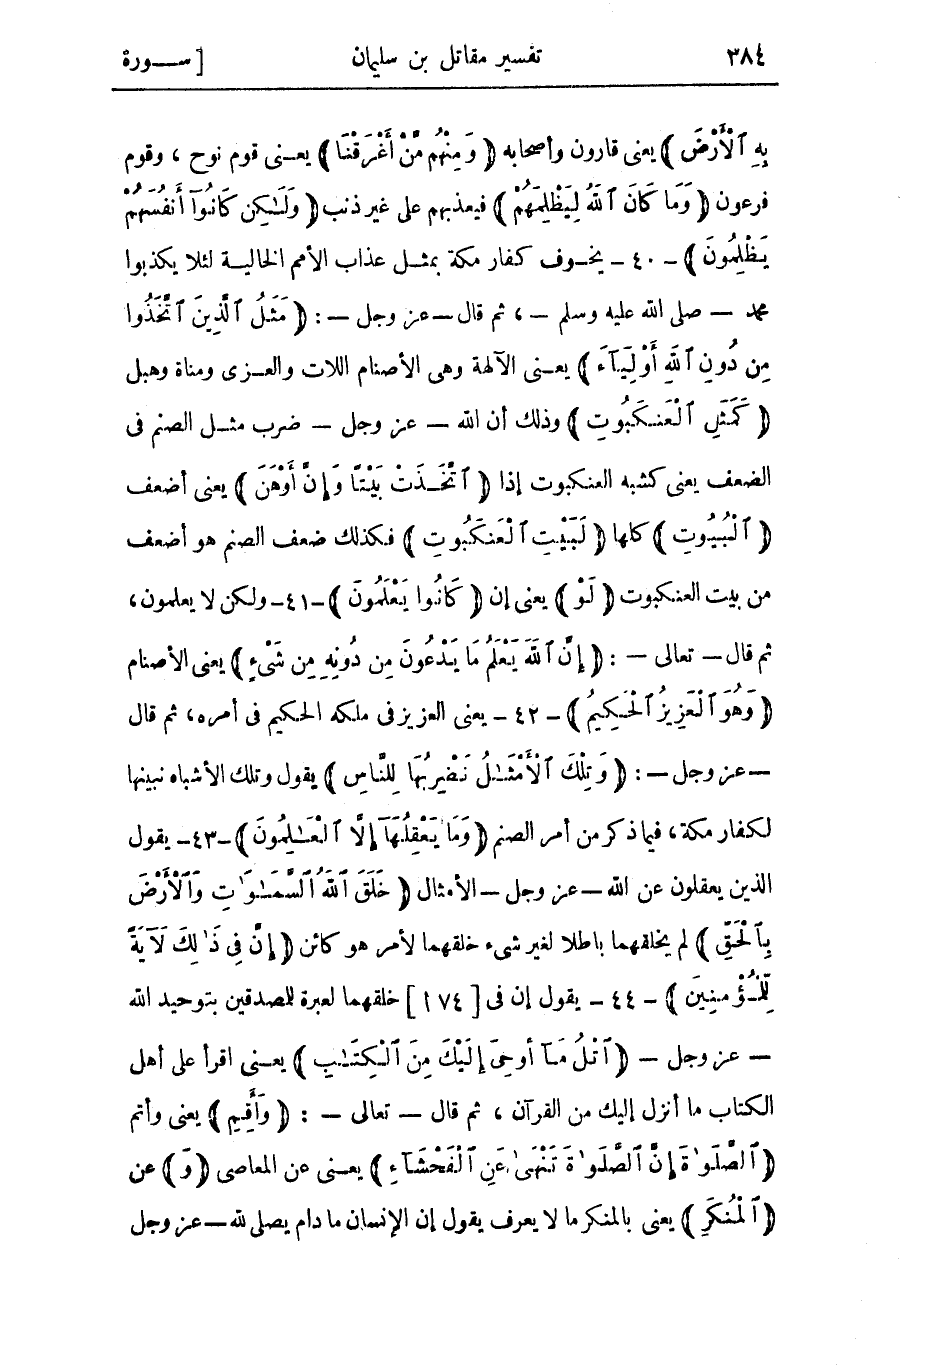 ٣٨٤ تفسير مقاتل بن سليمان [ سـورة
بِهِ ٱلْأَرْضَ ﴾ يعنى قارون وأصحابه ﴿ وَمِنْهُم مَّنْ أَغْرَقْنَا ﴾ يعنى قوم نوح ، وقوم
فرعون ﴿ وَمَا كَانَ ٱللَّهُ لِيَظْلِمَهُمْ ﴾ فيعذبهم على غير ذنب ﴿ وَلَـٰكِن كَانُوٓا أَنفُسَهُمْ
يَظْلِمُونَ ﴾ ـ ٤٠ ـ يخوف كفار مكة بمثل عذاب الأمم الخالية لئلا يكذبوا
محمد — صلى الله عليه وسلم — ، ثم قال — عز وجل — : ﴿ مَثَلُ ٱلَّذِينَ ٱتَّخَذُوا
مِن دُونِ ٱللَّهِ أَوْلِيَآءَ ﴾ يعنى الآلهة وهى الأصنام اللات والعزى ومناة وهبل
﴿ كَمَثَلِ ٱلْعَنكَبُوتِ ﴾ وذلك أن الله — عز وجل — ضرب مثل الصنم فى
الضعف يعنى كشبه العنكبوت إذا ﴿ ٱتَّخَذَتْ بَيْتًا وَإِنَّ أَوْهَنَ ﴾ يعنى أضعف
﴿ ٱلْبُيُوتِ ﴾ كلها ﴿ لَبَيْتُ ٱلْعَنكَبُوتِ ﴾ فكذلك ضعف الصنم هو أضعف
من بيت العنكبوت ﴿ لَوْ ﴾ يعنى إن ﴿ كَانُوا يَعْلَمُونَ ﴾ ـ ٤١ ـ ولكن لا يعلمون ،
ثم قال — تعالى — : ﴿ إِنَّ ٱللَّهَ يَعْلَمُ مَا يَدْعُونَ مِن دُونِهِ مِن شَىْءٍ ﴾ يعنى الأصنام
﴿ وَهُوَ ٱلْعَزِيزُ ٱلْحَكِيمُ ﴾ ـ ٤٢ ـ يعنى العزيز فى ملكه الحكيم فى أمره ، ثم قال
— عز وجل — : ﴿ وَتِلْكَ ٱلْأَمْثَـٰلُ نَضْرِبُهَا لِلنَّاسِ ﴾ يقول وتلك الأشباه نبينها
لكفار مكة ، فيما ذكر من أمر الصنم ﴿ وَمَا يَعْقِلُهَآ إِلَّا ٱلْعَـٰلِمُونَ ﴾ ـ ٤٣ ـ يقول
الذين يعقلون عن الله — عز وجل — الأمثال ﴿ خَلَقَ ٱللَّهُ ٱلسَّمَـٰوَٰتِ وَٱلْأَرْضَ
بِٱلْحَقِّ ﴾ لم يخلقهما باطلا لغير شىء خلقهما لأمر هو كائن ﴿ إِنَّ فِى ذَٰلِكَ لَآيَةً
لِّلْمُؤْمِنِينَ ﴾ ـ ٤٤ ـ يقول إن فى [ ١٧٤ ] خلقهما لعبرة للمصدقين بتوحيد الله
— عز وجل — ﴿ ٱتْلُ مَآ أُوحِىَ إِلَيْكَ مِنَ ٱلْكِتَـٰبِ ﴾ يعنى اقرأ على أهل
الكتاب ما أنزل إليك من القرآن ، ثم قال — تعالى — : ﴿ وَأَقِمِ ﴾ يعنى وأتم
﴿ ٱلصَّلَوٰةَ إِنَّ ٱلصَّلَوٰةَ تَنْهَىٰ عَنِ ٱلْفَحْشَآءِ ﴾ يعنى عن المعاصى ﴿ وَ ﴾ عن
﴿ ٱلْمُنكَرِ ﴾ يعنى بالمنكر ما لا يعرف يقول إن الإنسان ما دام يصلى لله — عز وجل